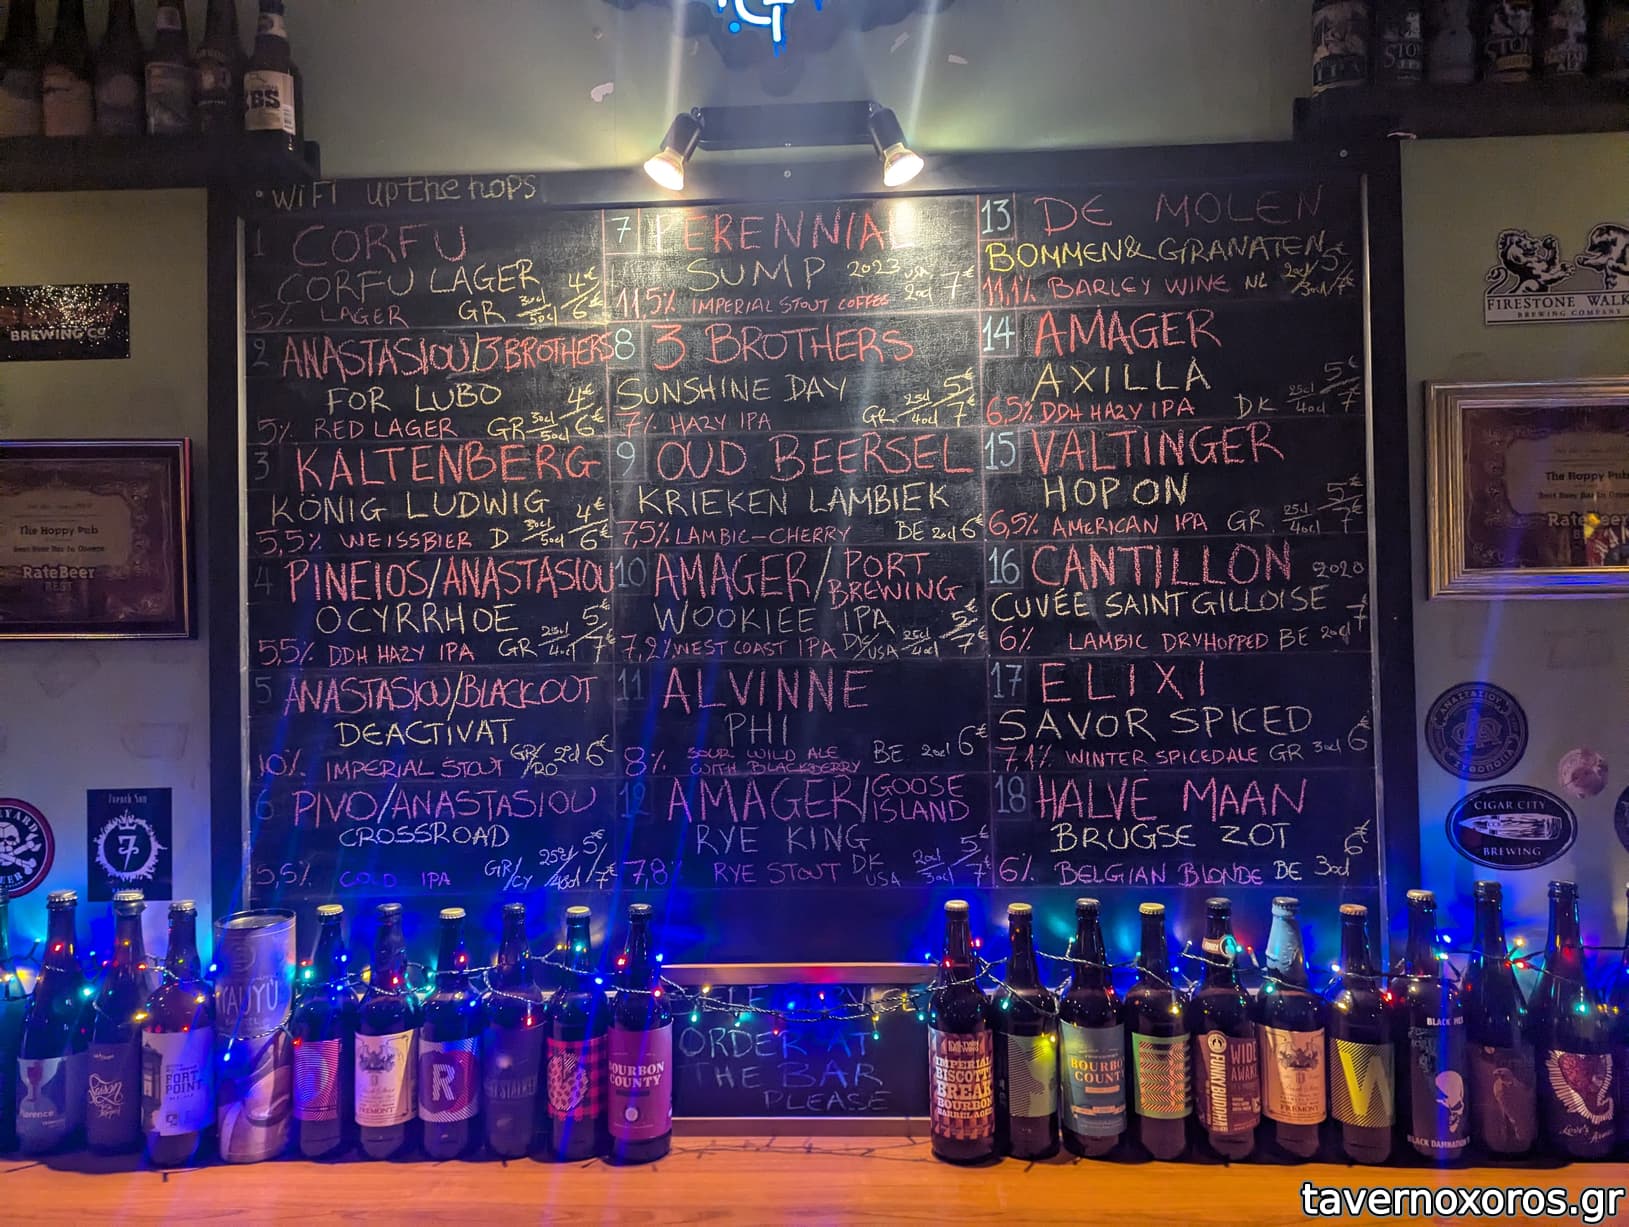 WIFI upthehops
1 CORFU
CORFU LAGER 4€
5% LAGER GR 30cl/50cl 6€
2 ANASTASIOU/3 BROTHERS
FOR LUBO 4€
5% RED LAGER GR 30cl/50cl 6€
3 KALTENBERG
KÖNIG LUDWIG 4€
5,5% WEISSBIER D 30cl/50cl 6€
4 PINEIOS/ANASTASIOU
OCYRRHOE 5€
5,5% DDH HAZY IPA GR 25cl/40cl 7€
5 ANASTASIOU/BLACKOUT
DEACTIVAT
10% IMPERIAL STOUT GR/RO 20cl 6€
6 PIVO/ANASTASIOU
CROSSROAD 5€
5,5% COLD IPA GR/CY 25cl/40cl 7€
7 PERENNIAL
SUMP 2023 USA 7€
11,5% IMPERIAL STOUT COFFEE 20cl
8 3 BROTHERS
SUNSHINE DAY 5€
7% HAZY IPA GR 25cl/40cl 7€
9 OUD BEERSEL
KRIEKEN LAMBIEK
7,5% LAMBIC-CHERRY BE 20cl 6€
10 AMAGER/PORT BREWING
WOOKIEE IPA 5€
7,2% WEST COAST IPA DK/USA 25cl/40cl 7€
11 ALVINNE
PHI
8% SOUR WILD ALE WITH BLACKBERRY BE 20cl 6€
12 AMAGER/GOOSE ISLAND
RYE KING 5€
7,8% RYE STOUT DK USA 20cl/30cl 7€
13 DE MOLEN
BOMMEN & GRANATEN 5€
11,1% BARLEY WINE NL 20cl/30cl/7€
14 AMAGER
AXILLA 5€
6,5% DDH HAZY IPA DK 25cl/40cl 7
15 VALTINGER
HOP ON 5€
6,5% AMERICAN IPA GR 25cl/40cl 7€
16 CANTILLON 2020
CUVÉE SAINT GILLOISE 7€
6% LAMBIC DRYHOPPED BE 20cl
17 ELIXI
SAVOR SPICED
7,1% WINTER SPICED ALE GR 30cl 6€
18 HALVE MAAN
BRUGSE ZOT 6€
6% BELGIAN BLONDE BE 30cl
ORDER AT
THE BAR
PLEASE
BREWING CO
The Hoppy Pub
RateBeer
BEST
The Hoppy Pub
RateBeer
FIRESTONE WALK
BREWING COMPANY
CIGAR CITY
BREWING
KBS
7
FORT
POINT
FREMONT
R
BOURBON
COUNTY
IMPERIAL
BISCOTTI
BREAK
BOURBON
BARREL AGED
BOURBON
COUNTY
WIDE
AWAKE
FREMONT
W
BLACK
BLACK DAMNATION
tavernoxoros.gr